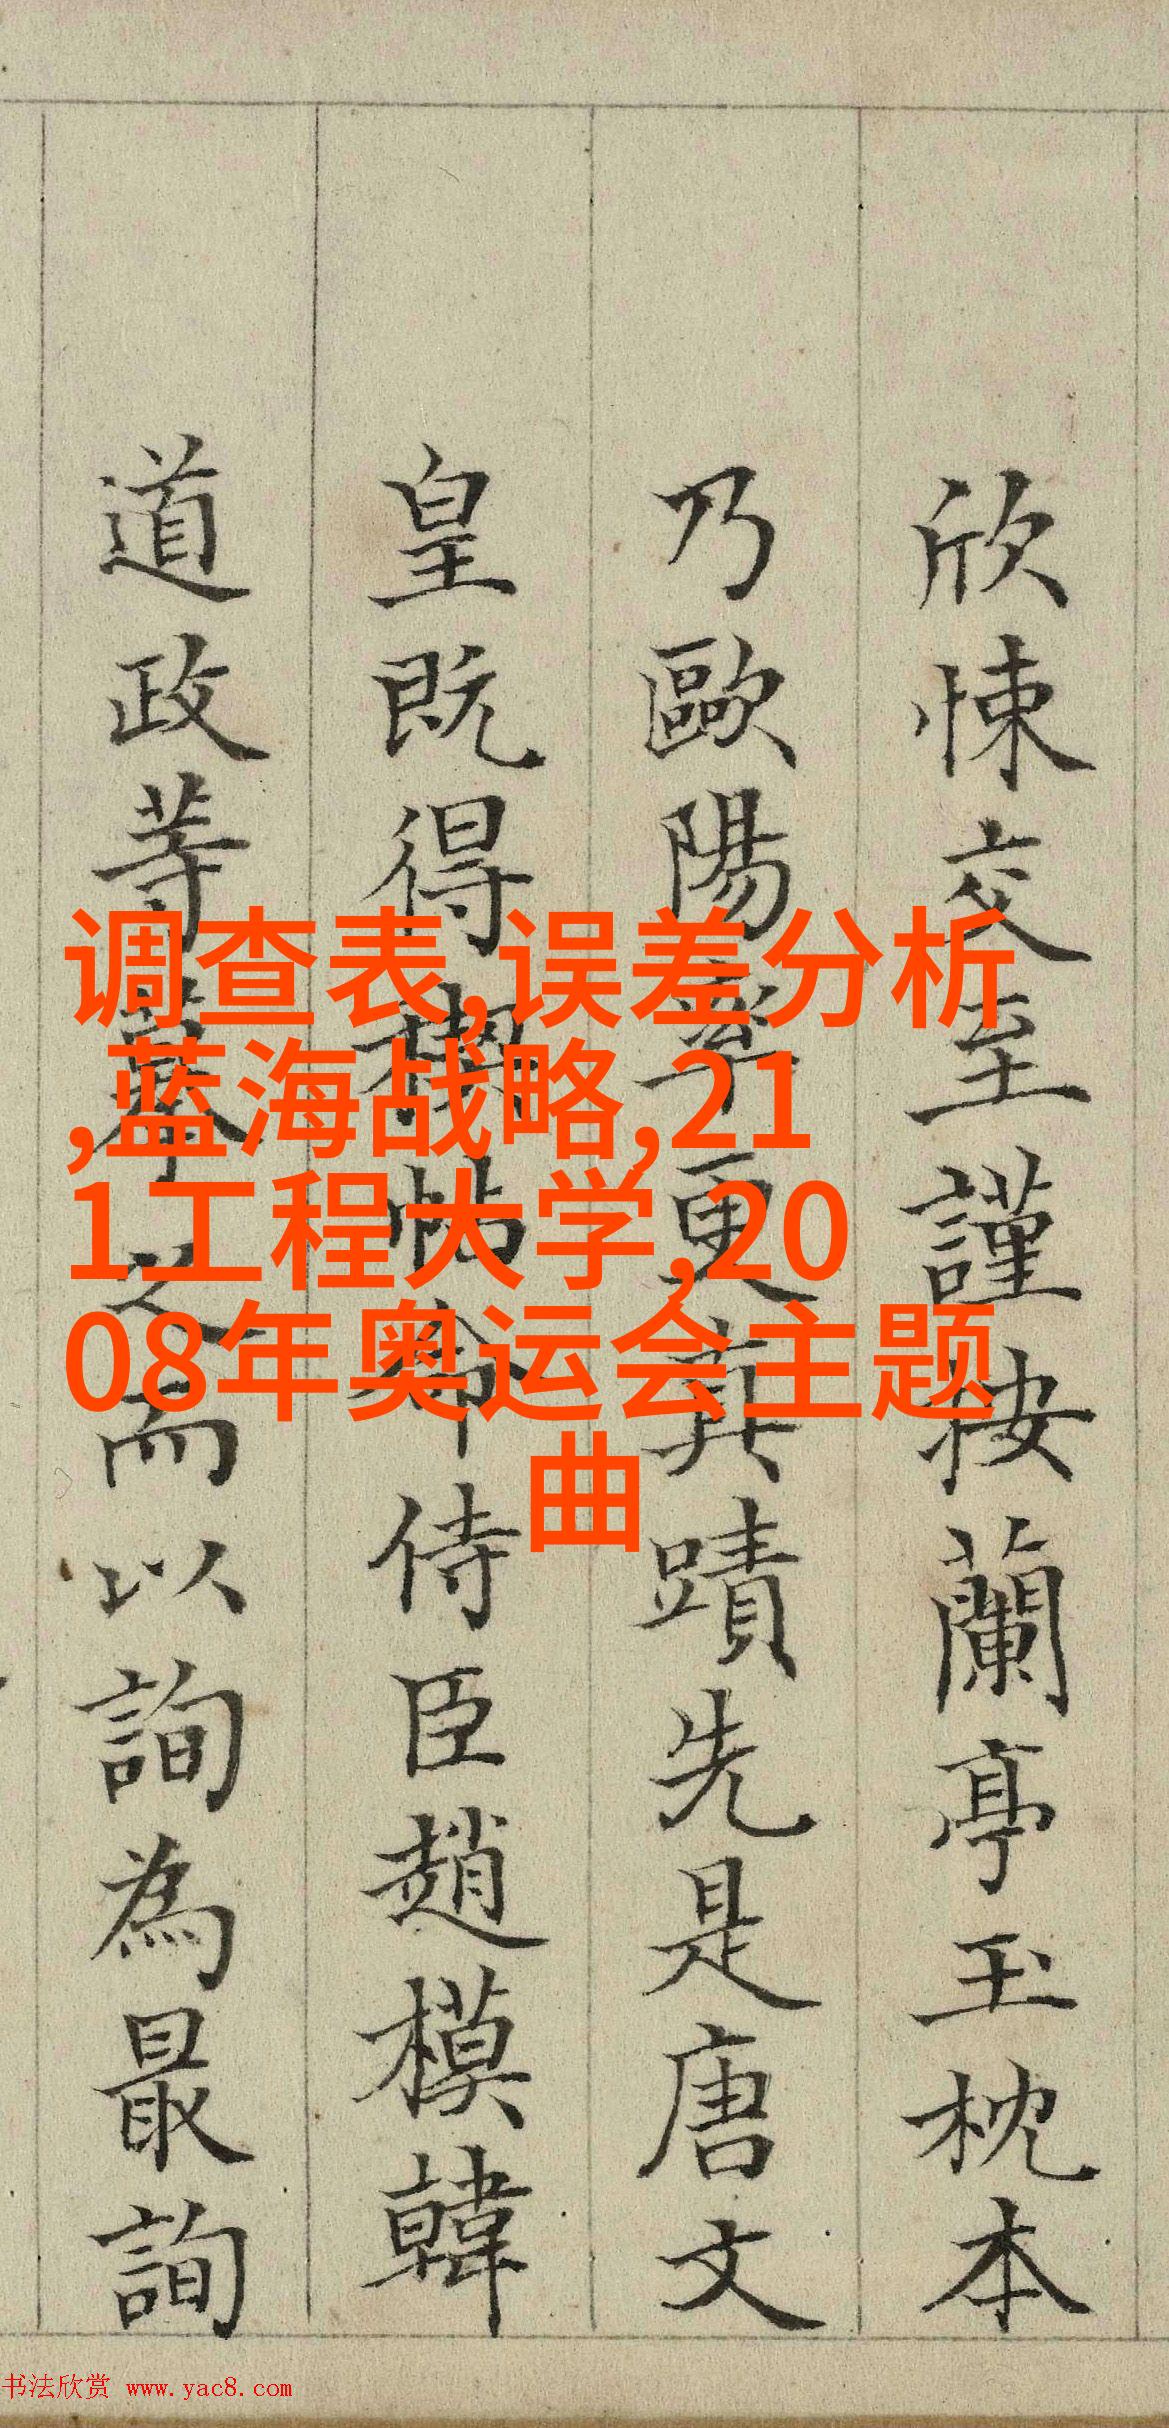 欣悚交至謹按蘭亭玉枕本
乃歐陽率更真蹟先是唐文
皇既得禊帖命侍臣趙模韓
道政等摹之而以詢為最詢
调查表,误差分析
,蓝海战略,21
1工程大学,20
08年奥运会主题
曲
书法欣赏 www.yac8.com